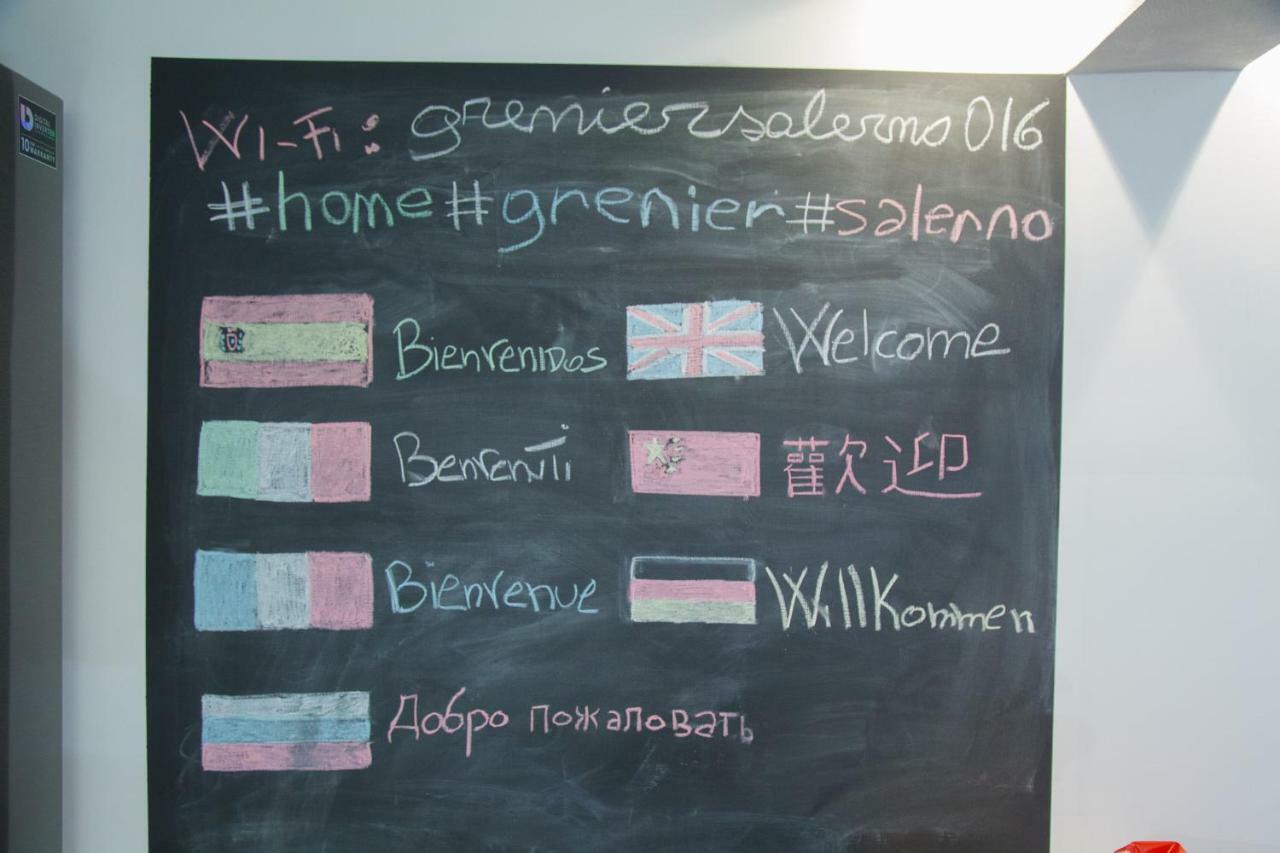 Wi-Fi: greniersalerno016
#home#grenier#salerno
Bienvenidos
Welcome
Benvenuti
歡迎
Bienvenue
Willkommen
Добро пожаловать
DIGITAL
INVERTER
10
WARRANTY